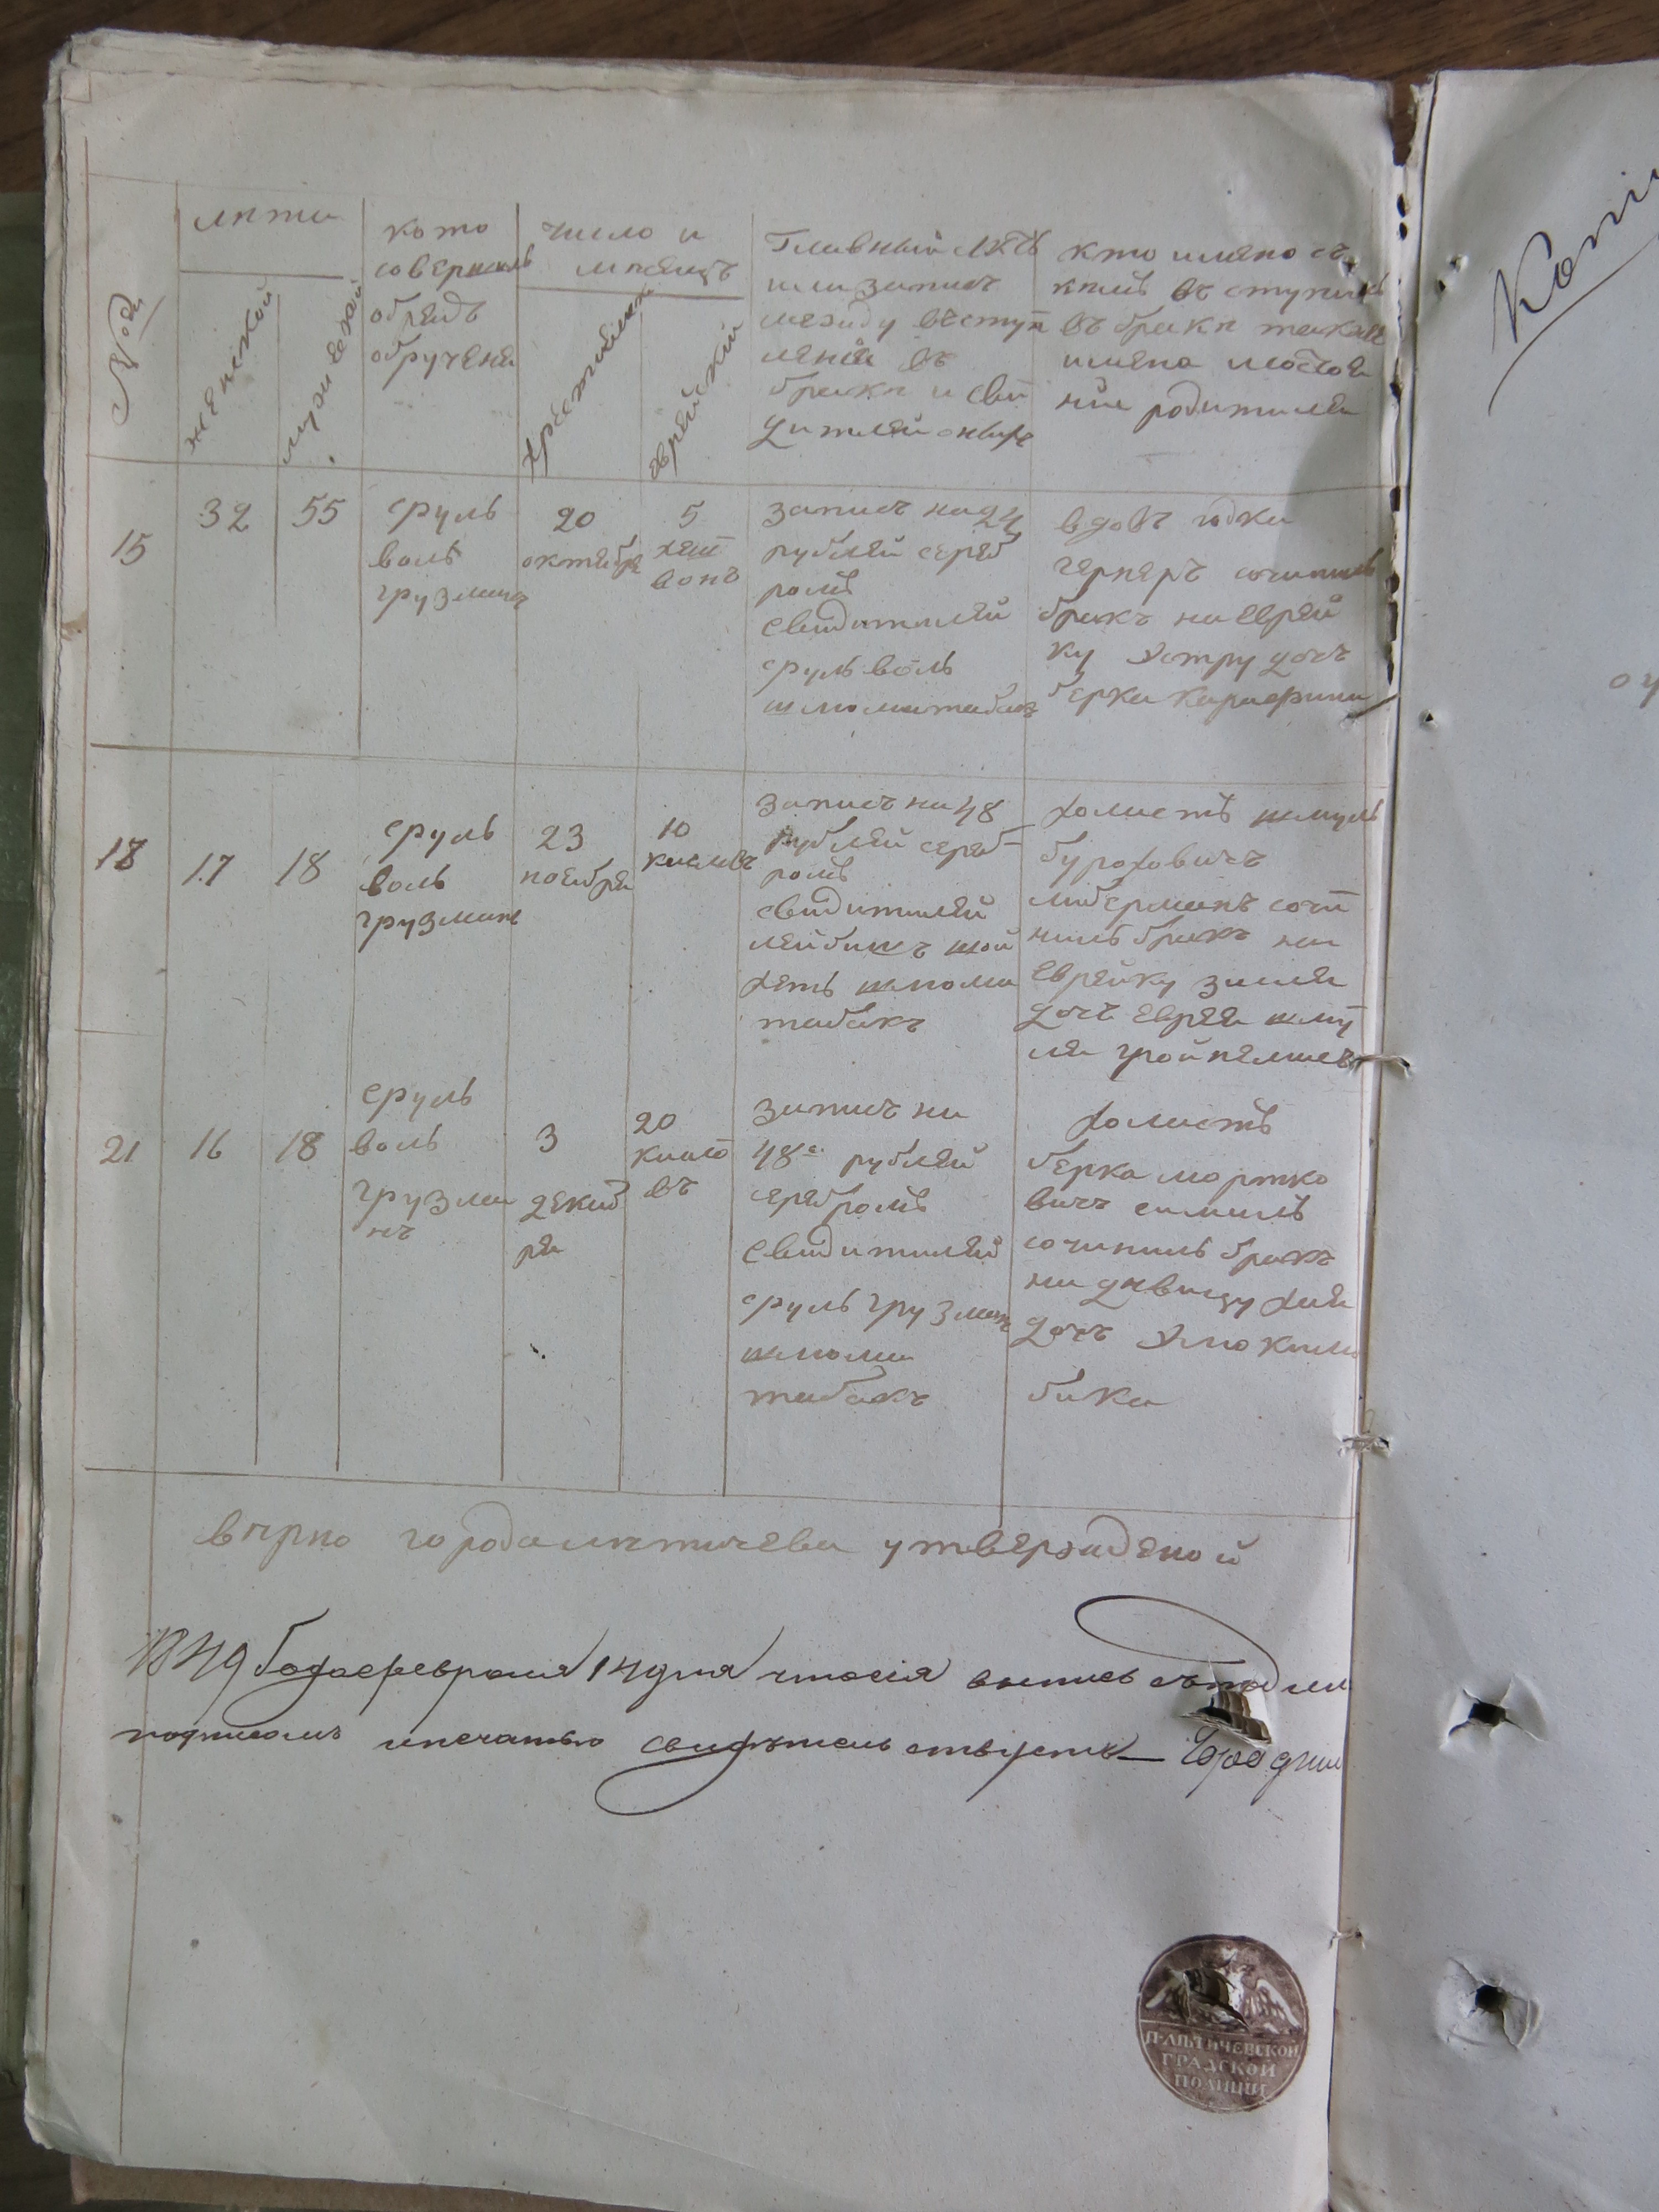 лѣти
№ оди
женской
мужеской
кото
совершилъ
обрядъ
обрученя
число и
мѣсяцъ
християнский
еврейский
Главный актъ
или запись
между вступ
ления въ
бракъ и сви
дителей оныхъ
кто имяно съ
кемъ въ ступилъ
въ бракъ также
имена
родителей
15
32
55
сруль
воль
грузманъ
20
октября
5
хеш
вонъ
запись на 24
рублей сереб
ромъ
свидителей
сруль воль
шлома табакъ
вдовъ
гернеръ сочинилъ
бракъ на еврей
ку Эстру дочъ
берка
18
17
18
сруль
воль
грузманъ
23
ноября
10
кислевъ
запись на 48
рублей сереб
ромъ
свидителей
лейбишъ шой
хетъ шлома
табакъ
холастъ шмуль
буроховичъ
либерманъ сочи
нилъ бракъ на
еврейку зисля
дочъ еврея шму
ля
21
16
18
сруль
воль
грузма
нъ
3
декаб
ря
20
кисло
въ
запись на
48 рублей
серебромъ
свидителей
сруль грузманъ
шлома
табакъ
холастъ
берка мортко
вичъ
сочинилъ бракъ
на дѣвицу хая
дочъ
бика
вѣрно города летичева утвержденой
1849 года февраля 14 дня что сия выпись съ
подписомъ и печатью свидѣтельствуетъ —
П. ЛѢТИЧЕВСКОЙ
ГРАДСКОЙ
ПОЛИЦИИ
Копи